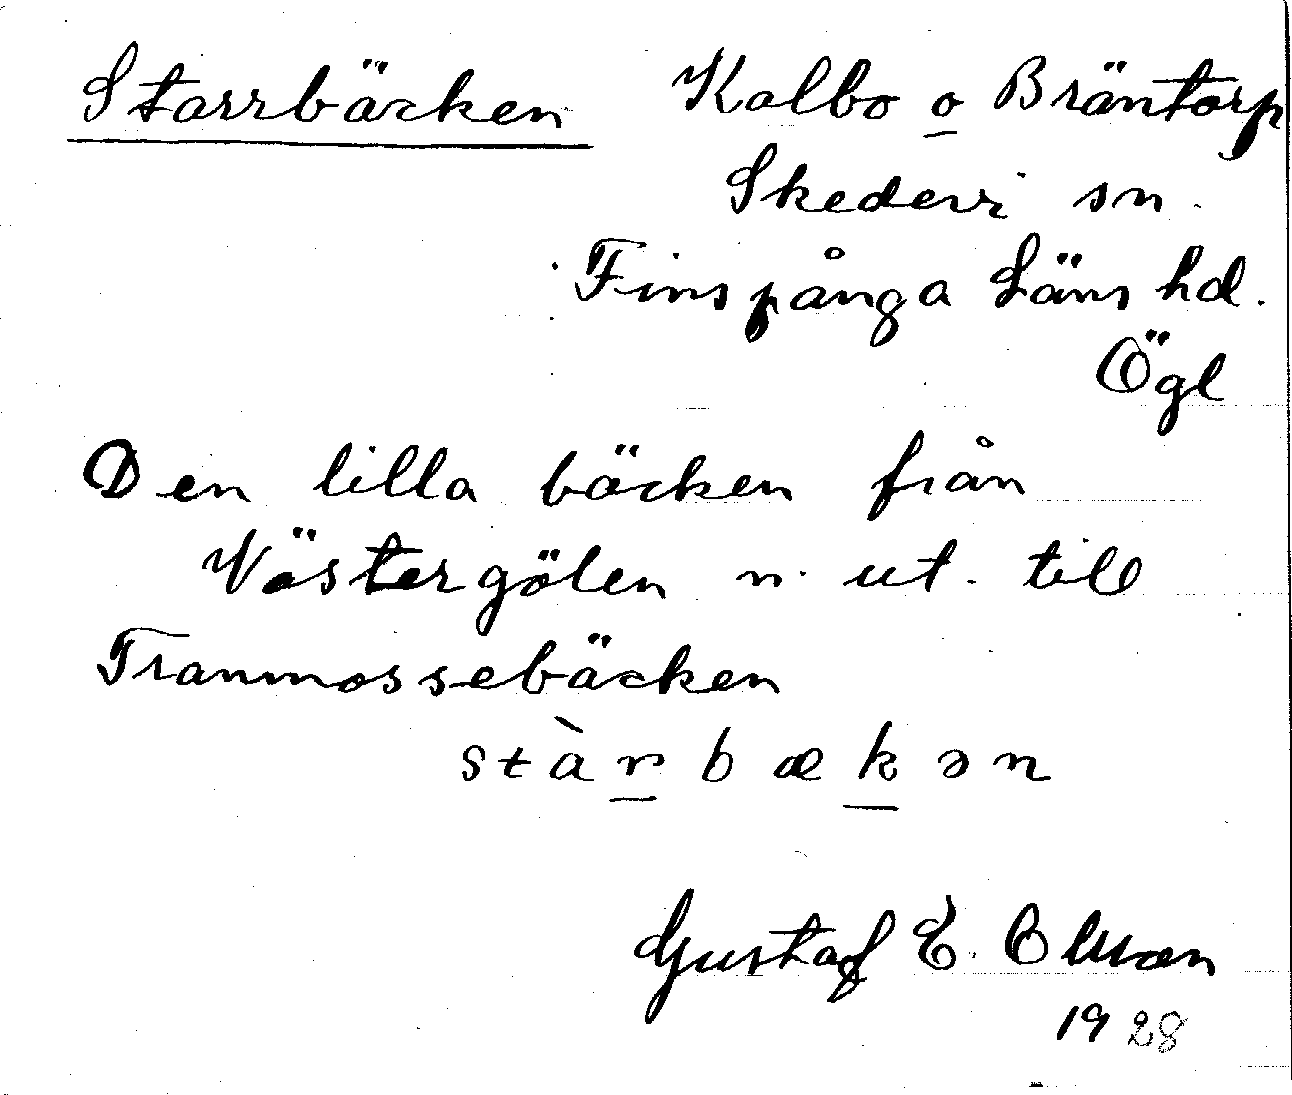 Starrbäcken Kalbo o Bräntorp
Skedevi sn.
Finspånga Läns hd.
Ögl
Den lilla bäcken från
Västergölen n. ut. till
Tranmossebäcken
stàrbækən
Gustaf E. Olsson
1928